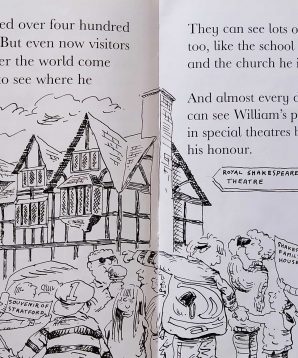 ed over four hundred
But even now visitors
er the world come
to see where he
They can see lots o
too, like the school
and the church he i
And almost every d
can see William's p
in special theatres b
his honour.
ROYAL SHAKESPEARE
THEATRE
SOUVENIR OF
STRATFORD
SHAKES
FAMIL
HOUSE